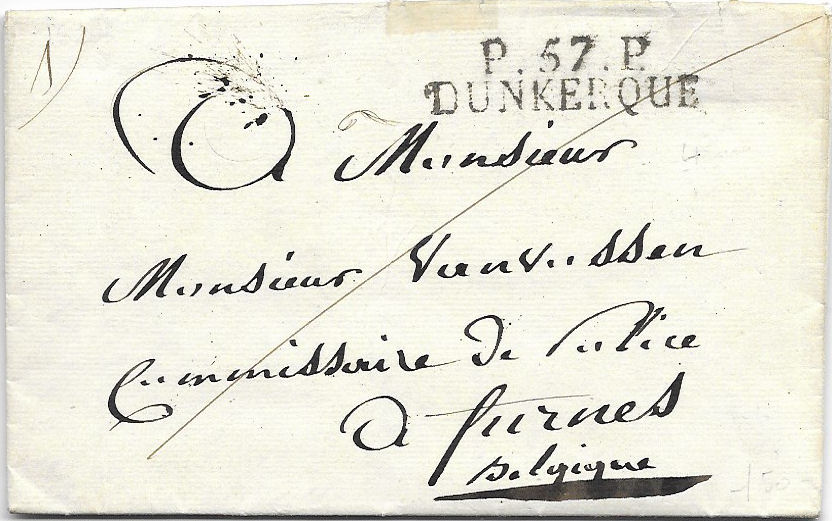 1)
P. 57. P.
DUNKERQUE
A Monsieur
Monsieur Vanvossen
Commissaire de Police
a furnes
Belgique